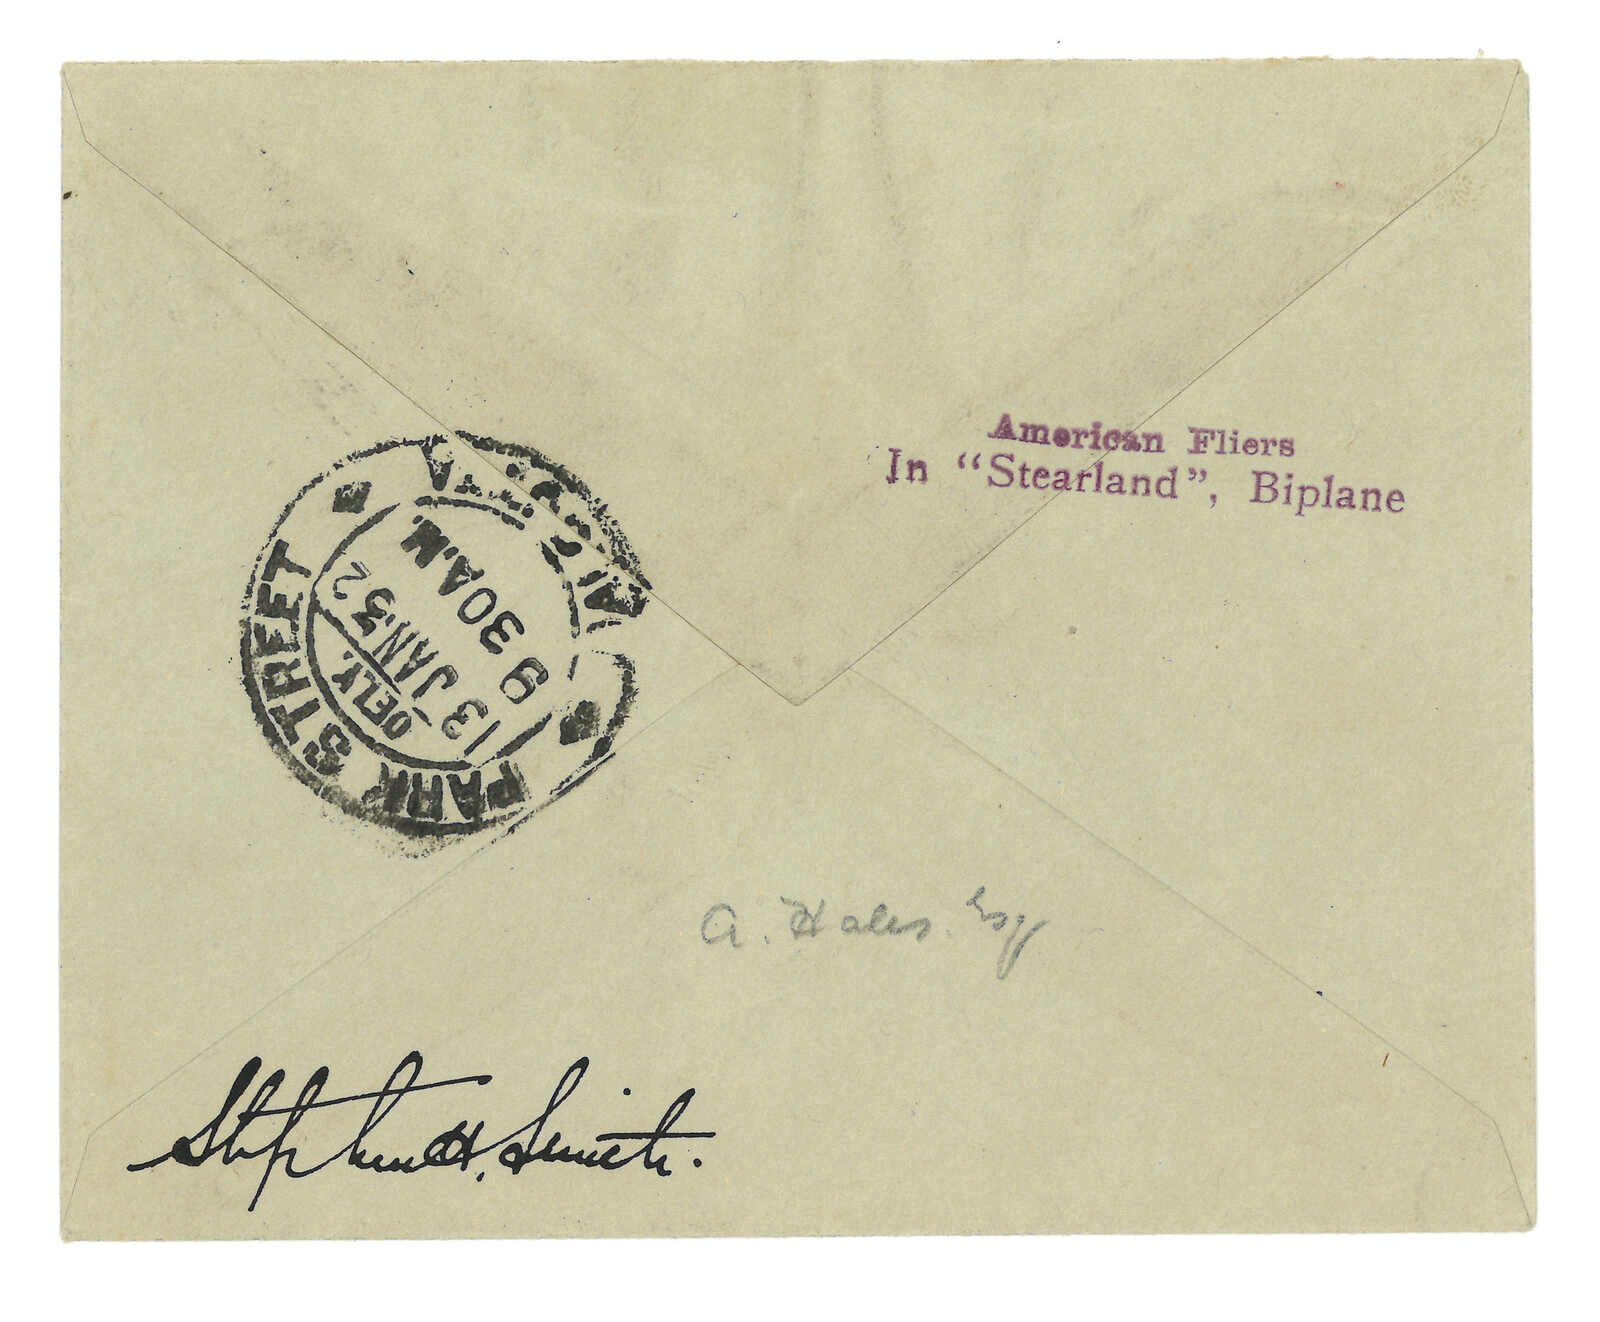 American Fliers
In “Stearland”, Biplane
PARK STREET
DELY.
13 JAN.32
9 30A.M.
A. Hales. Esq
Stephen H. Smith.